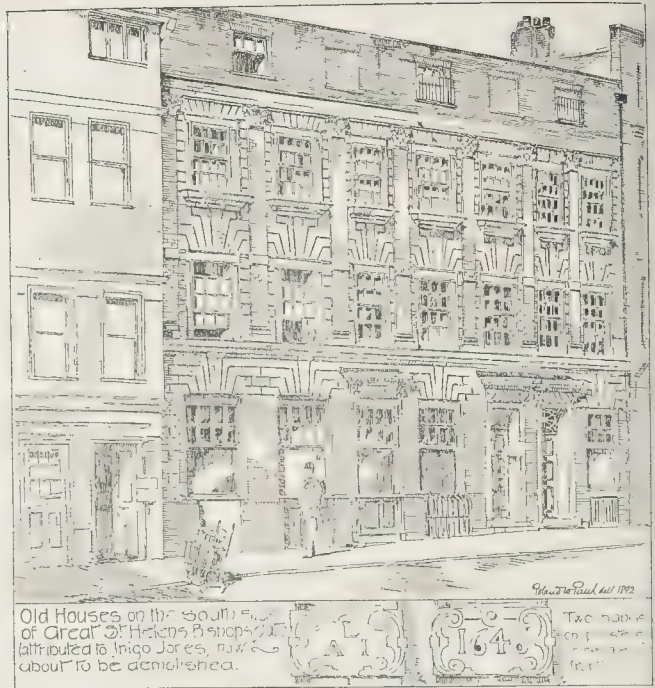 Roland W Paul del 1892
Old Houses on the south
of Great St Helens Bishops
(attributed to Inigo Jones, now
about to be demolished.
A
L I
164
Two
on